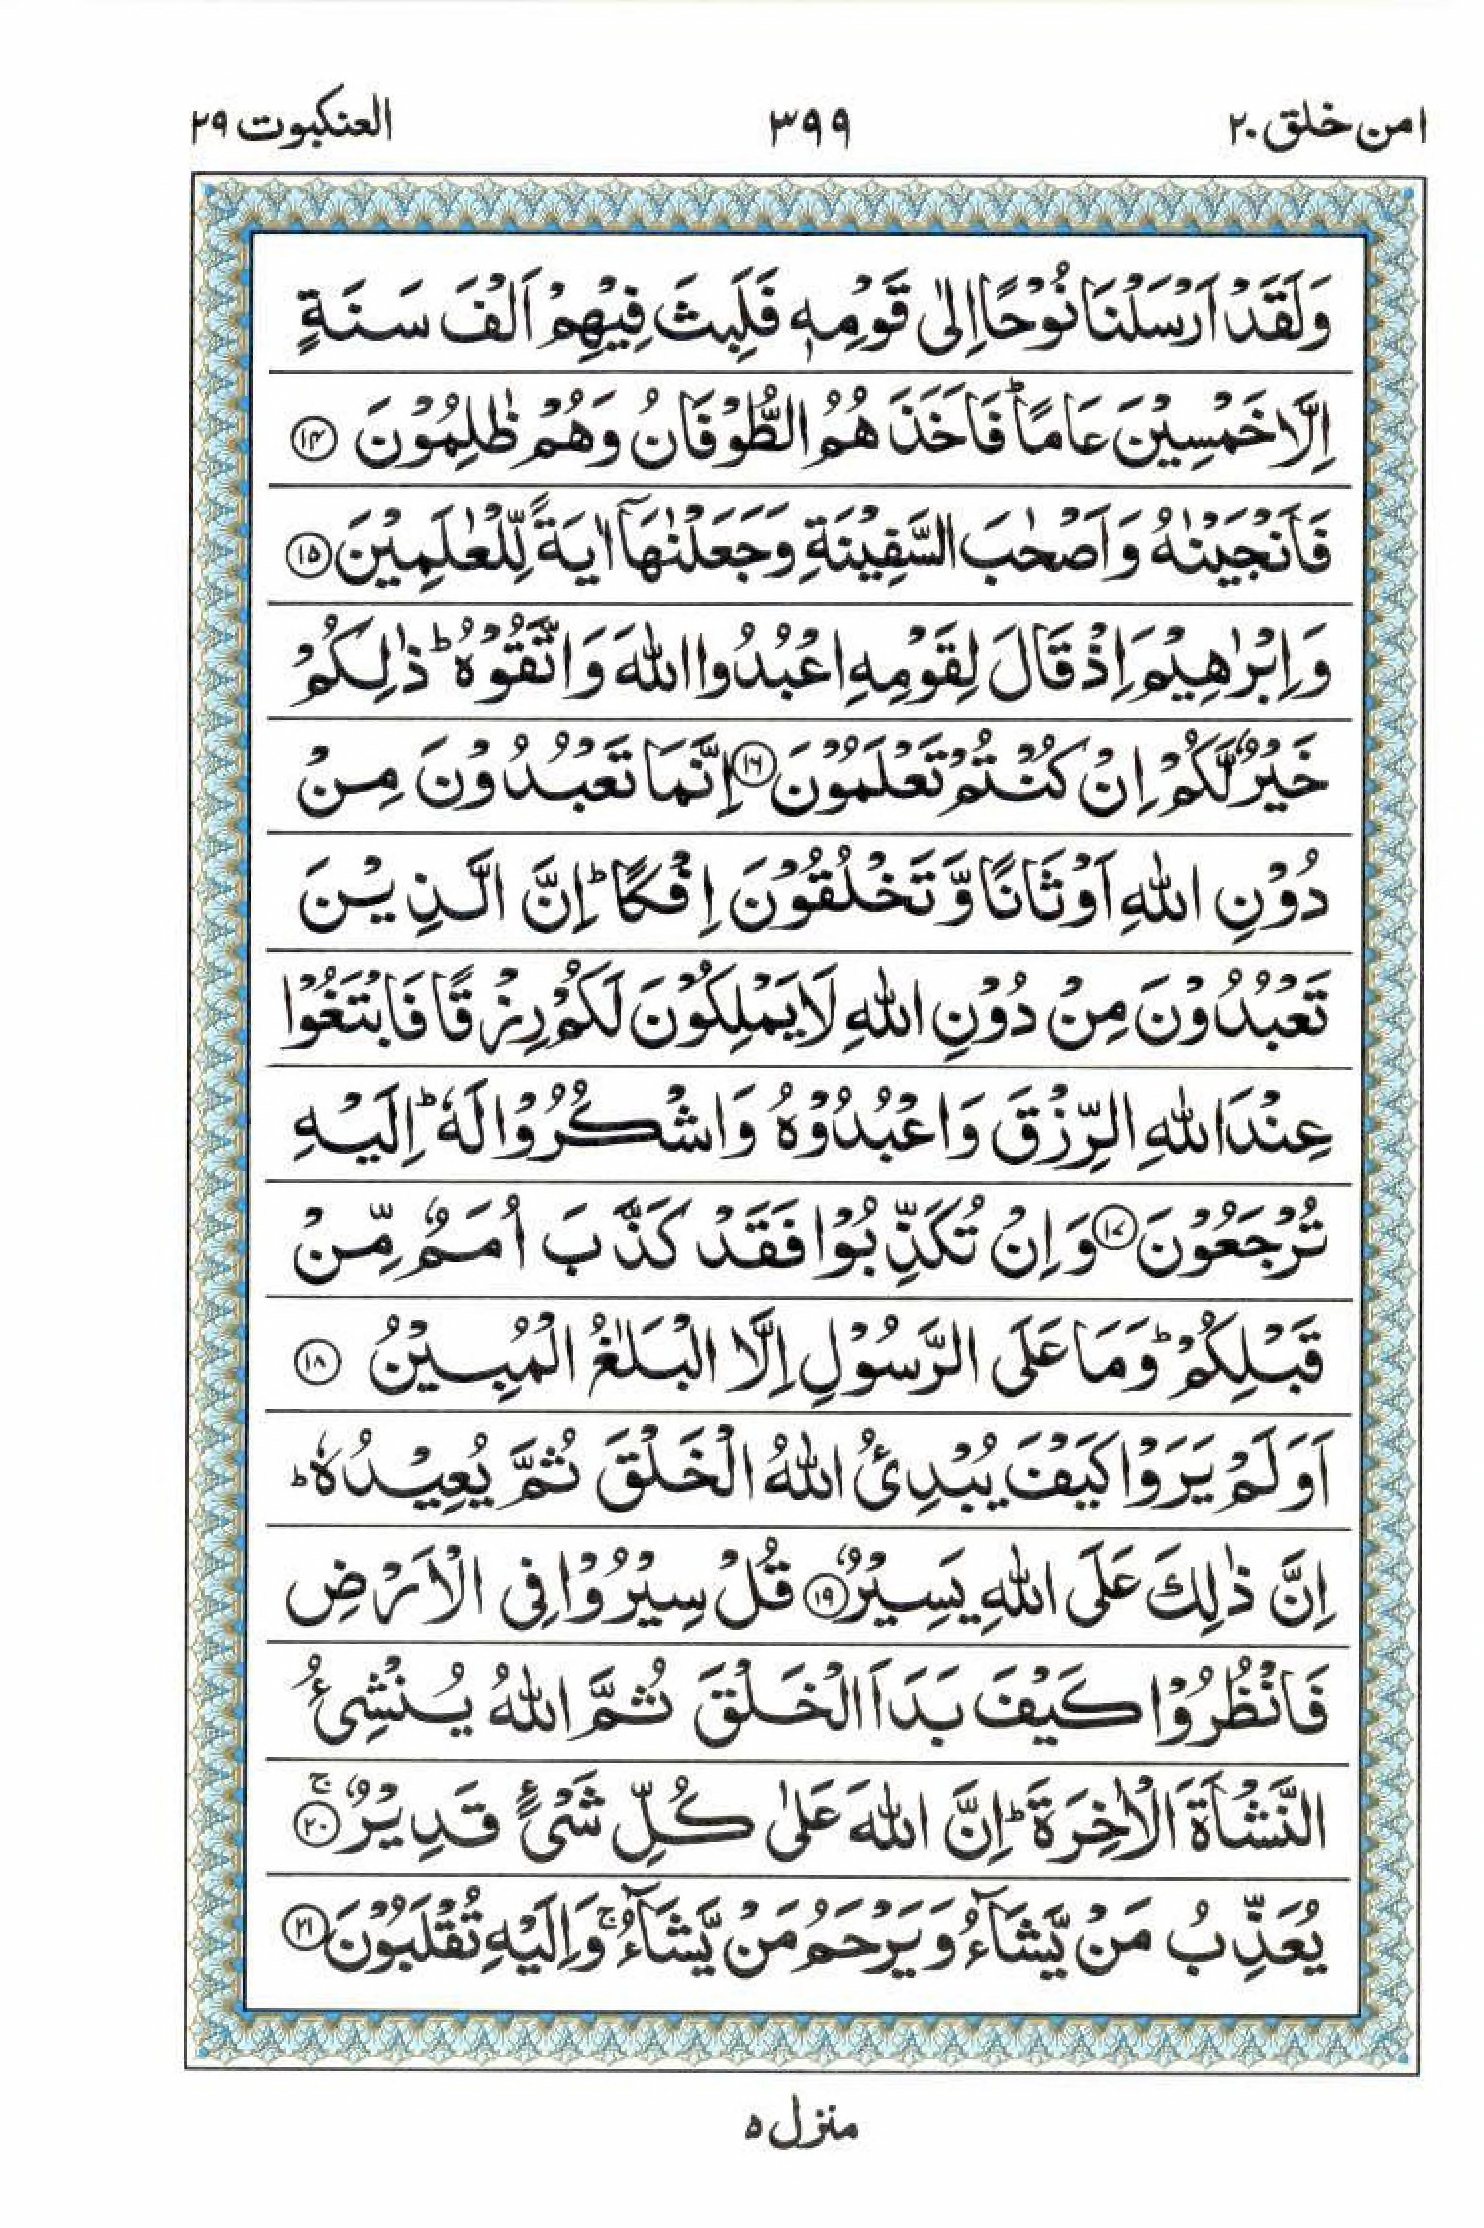 امن خلق ۲۰
۳۹۹
العنكبوت ۲۹
وَلَقَدْ اَرْسَلْنَا نُوْحًا اِلٰى قَوْمِهٖ فَلَبِثَ فِيْهِمْ اَلْفَ سَنَةٍ
اِلَّا خَمْسِيْنَ عَامًا ؕ فَاَخَذَهُمُ الطُّوْفَانُ وَهُمْ ظٰلِمُوْنَ ۱۴
فَاَنْجَيْنٰهُ وَاَصْحٰبَ السَّفِيْنَةِ وَجَعَلْنٰهَاۤ اٰيَةً لِّلْعٰلَمِيْنَ ۱۵
وَاِبْرٰهِيْمَ اِذْ قَالَ لِقَوْمِهِ اعْبُدُوا اللّٰهَ وَاتَّقُوْهُ ؕ ذٰلِكُمْ
خَيْرٌ لَّكُمْ اِنْ كُنْتُمْ تَعْلَمُوْنَ ۱۶ اِنَّمَا تَعْبُدُوْنَ مِنْ
دُوْنِ اللّٰهِ اَوْثَانًا وَّتَخْلُقُوْنَ اِفْكًا ؕ اِنَّ الَّذِيْنَ
تَعْبُدُوْنَ مِنْ دُوْنِ اللّٰهِ لَا يَمْلِكُوْنَ لَكُمْ رِزْقًا فَابْتَغُوْا
عِنْدَ اللّٰهِ الرِّزْقَ وَاعْبُدُوْهُ وَاشْكُرُوْا لَهٗ ؕ اِلَيْهِ
تُرْجَعُوْنَ ۱۷ وَاِنْ تُكَذِّبُوْا فَقَدْ كَذَّبَ اُمَمٌ مِّنْ
قَبْلِكُمْ ؕ وَمَا عَلَى الرَّسُوْلِ اِلَّا الْبَلٰغُ الْمُبِيْنُ ۱۸
اَوَلَمْ يَرَوْا كَيْفَ يُبْدِئُ اللّٰهُ الْخَلْقَ ثُمَّ يُعِيْدُهٗ ؕ
اِنَّ ذٰلِكَ عَلَى اللّٰهِ يَسِيْرٌ ۱۹ قُلْ سِيْرُوْا فِى الْاَرْضِ
فَانْظُرُوْا كَيْفَ بَدَاَ الْخَلْقَ ثُمَّ اللّٰهُ يُنْشِئُ
النَّشْاَةَ الْاٰخِرَةَ ؕ اِنَّ اللّٰهَ عَلٰى كُلِّ شَىْءٍ قَدِيْرٌ ۲۰ ۚ
يُعَذِّبُ مَنْ يَّشَآءُ وَيَرْحَمُ مَنْ يَّشَآءُ ۚ وَاِلَيْهِ تُقْلَبُوْنَ ۲۱
منزل ۵